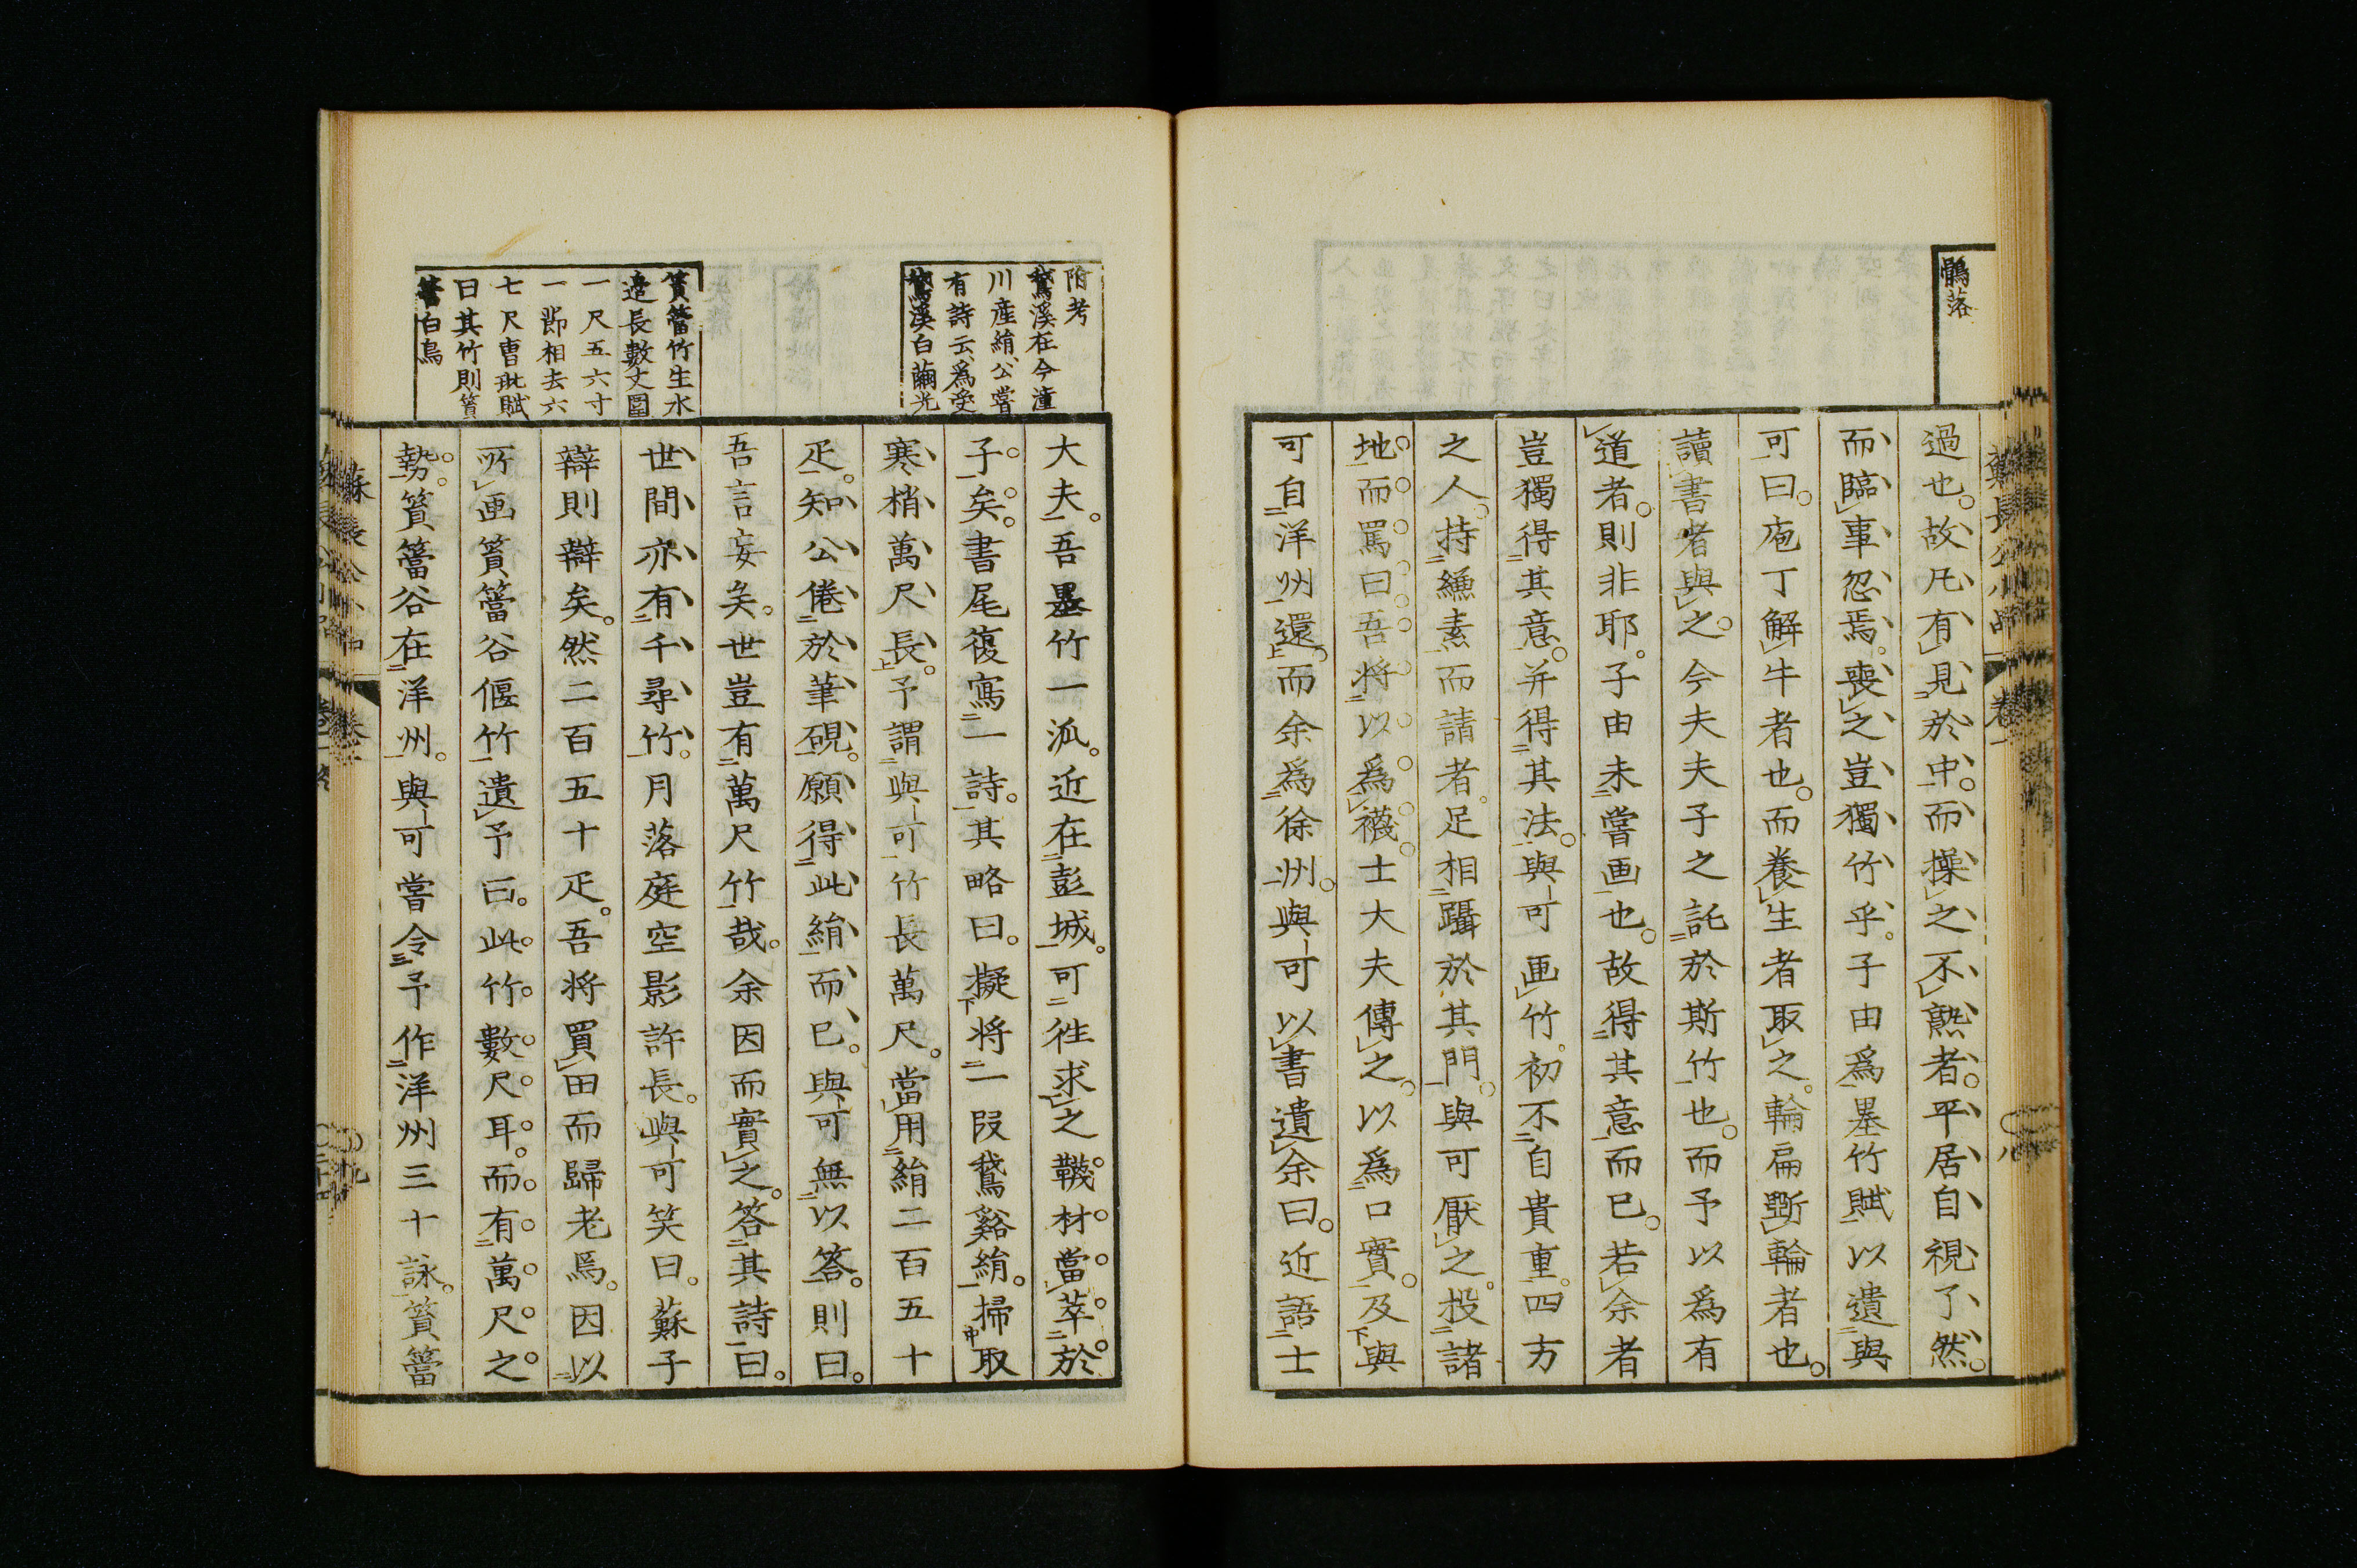 鶻落
過也。故凡有見於中。而操之不熟者。平居自視了然。
而臨事忽焉。喪之豈獨竹乎。子由爲墨竹賦以遺與
可曰。庖丁解牛者也。而養生者取之。輪扁斵輪者也。
讀書者與之。今夫夫子之託於斯竹也。而予以爲有
道者。則非耶。子由未嘗画也。故得其意而已。若余者
豈獨得其意。并得其法。與可画竹。初不自貴重。四方
之人。持縑素而請者。足相躡於其門。與可厭之。投諸
地。而罵曰。吾将以爲襪。士大夫傳之。以爲口實。及與
可自洋州還。而余爲徐州。與可以書遺余曰。近語士
附考
鵞溪在今潼
川産絹、公嘗
有詩云、爲愛
鵞溪白繭光
篔簹竹生水
邉長數丈圍
一尺五六寸
一節相去六
七尺曹毗賦
曰其竹則篔
簹白烏
大夫。吾墨竹一派。近在彭城。可往求之。韈材當萃於
子。矣。書尾復寫一詩。其略曰。擬将一段鵞谿絹。掃取
寒梢萬尺長。予謂與可竹長萬尺。當用絹二百五十
疋。知公倦於筆硯。願得此絹而已。與可無以答。則曰。
吾言妄矣。世豈有萬尺竹哉。余因而實之。答其詩曰。
世間亦有千尋竹。月落庭空影許長。與可笑曰。蘇子
辯則辯矣。然二百五十疋。吾将買田而歸老焉。因以
所画篔簹谷偃竹遺予曰。此竹數尺耳。而有萬尺之
勢。篔簹谷在洋州。與可嘗令予作洋州三十詠。篔簹